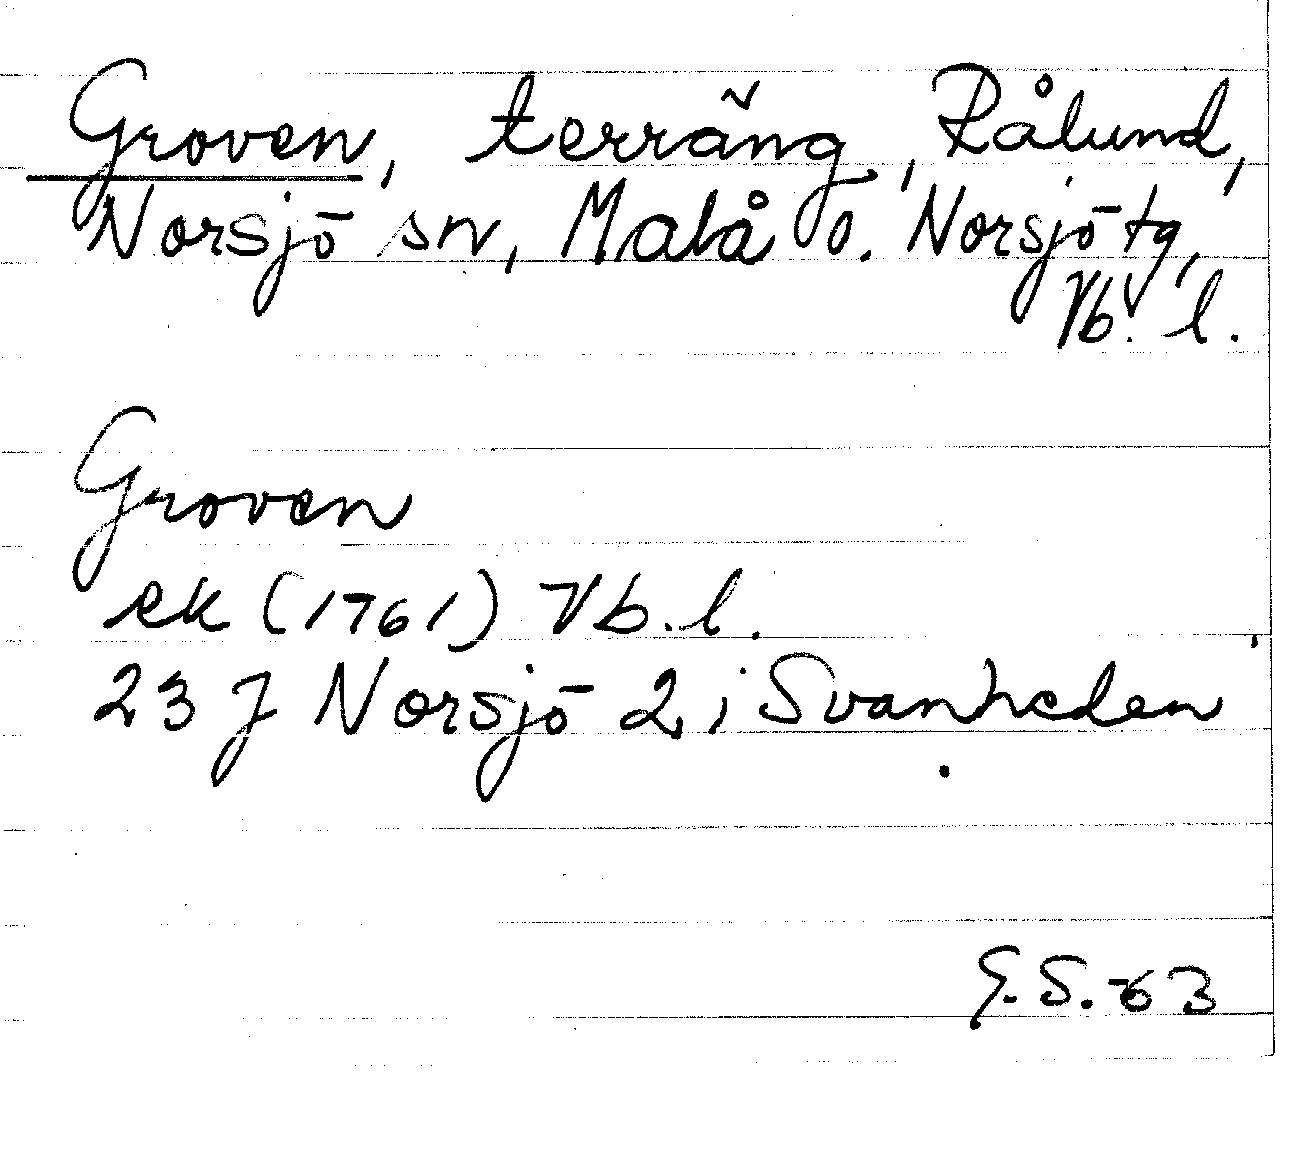 Groven, terräng, Rålund,
Norsjö sn, Malå o. Norsjö tg,
Vb. l.
Groven
ek (1761) Vb. l.
23 J Norsjö 2 i Svanheden
G. S. -63